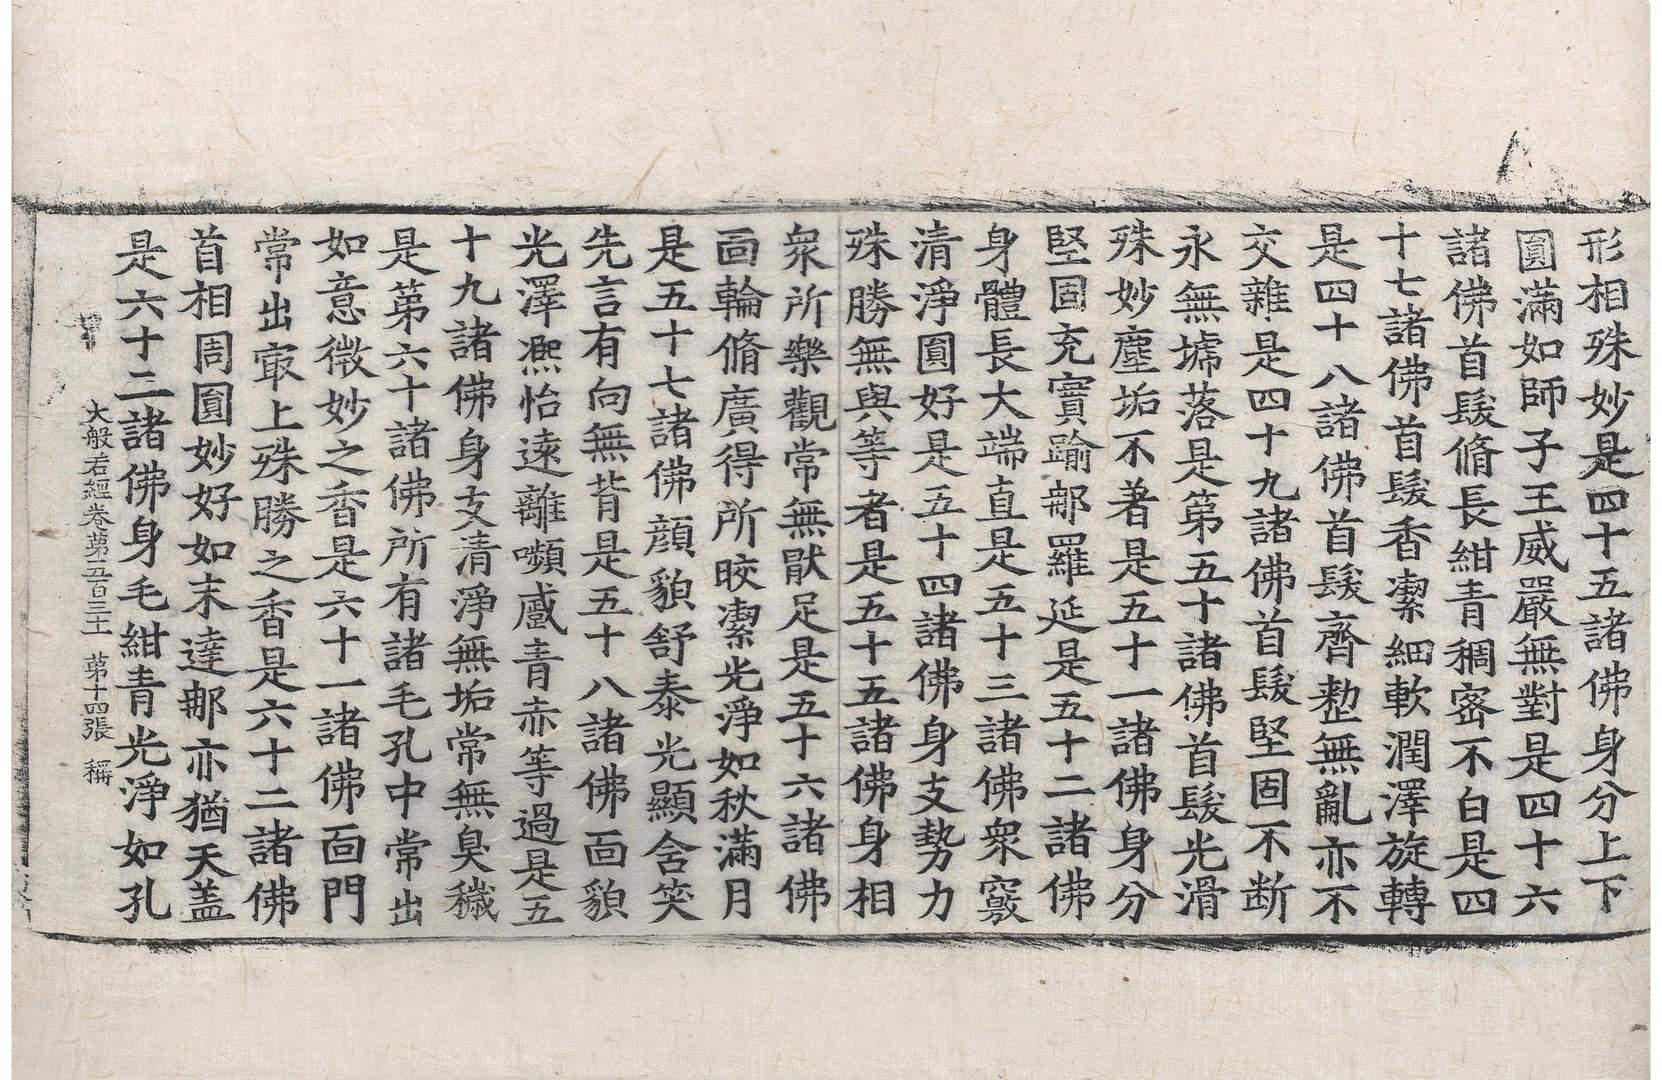 形相殊妙是四十五諸佛身分上下
圓滿如師子王威嚴無對是四十六
諸佛首髮脩長紺青稠密不白是四
十七諸佛首髮香潔細軟潤澤旋轉
是四十八諸佛首髮齊整無亂亦不
交雜是四十九諸佛首髮堅固不断
永無墆落是第五十諸佛首髮光滑
殊妙塵垢不著是五十一諸佛身分
堅固充實踰郍羅延是五十二諸佛
身體長大端直是五十三諸佛衆竅
清淨圓好是五十四諸佛身支勢力
殊勝無與等者是五十五諸佛身相
衆所樂觀常無猒足是五十六諸佛
面輪脩廣得所晈潔光淨如秋滿月
是五十七諸佛顔貌舒泰光顯含笑
先言有向無背是五十八諸佛面貌
光澤熈怡遠離嚬慼青赤等過是五
十九諸佛身支清淨無垢常無臭穢
是第六十諸佛所有諸毛孔中常出
如意微妙之香是六十一諸佛面門
常出㝡上殊勝之香是六十二諸佛
首相周圓妙好如末達郍亦猶天盖
是六十二諸佛身毛紺青光淨如孔
大般若經卷第五百三十一 第十四張 稱